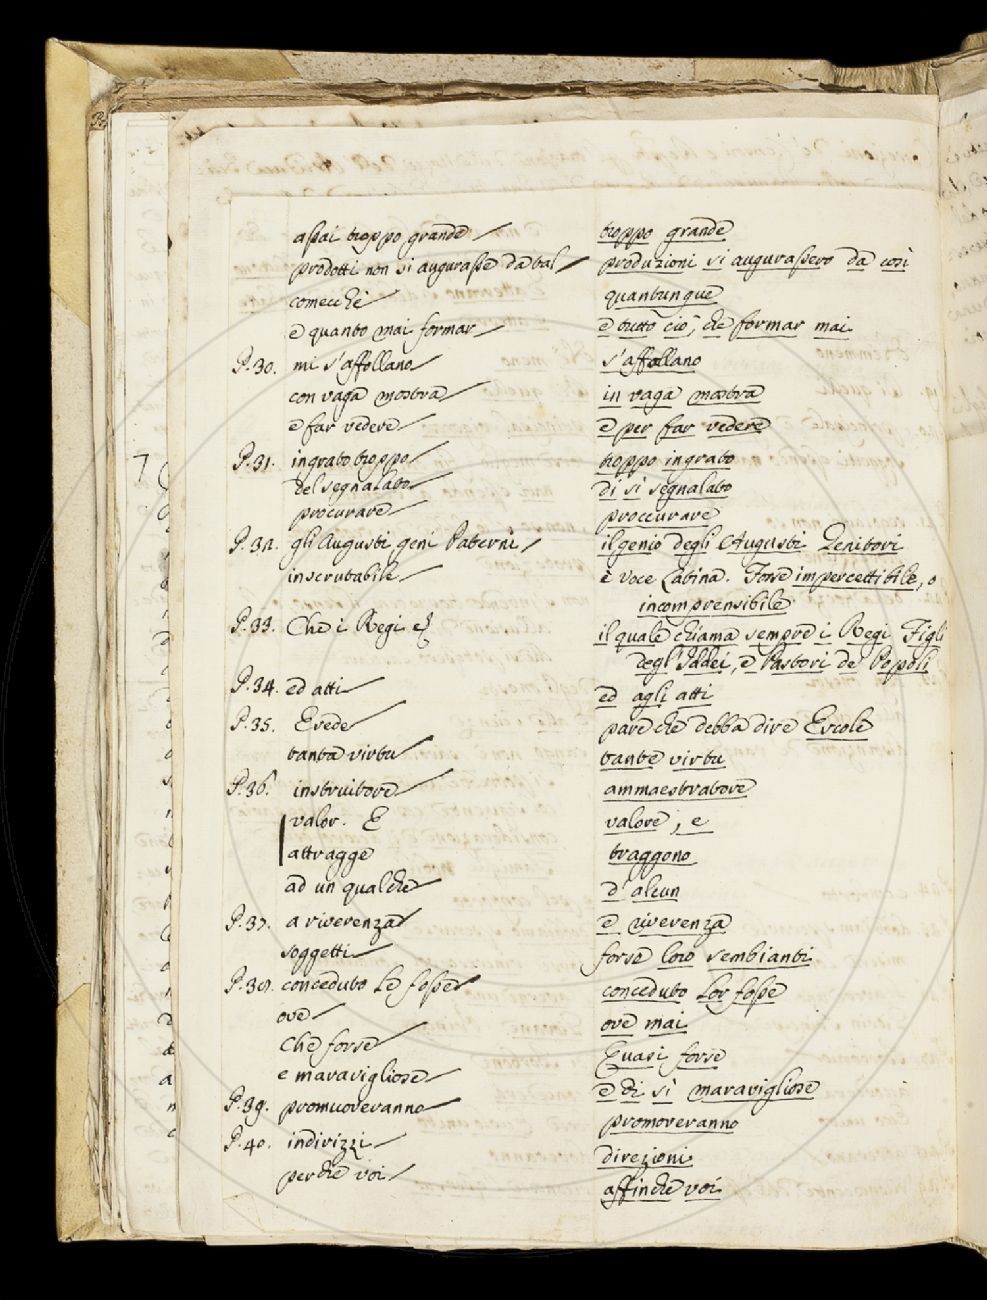 assai troppo grande troppo grande
prodotti non si augurasse da tal produzioni si augurassero da così
comecchè quantunque
e quanto mai formar e tutto ciò, che formar mai
P. 30. mi s'affollano s'affollano
con vaga mostra in vaga mostra
e far vedere e per far vedere
P. 31. ingrato troppo troppo ingrato
del segnalato di sì segnalato
procurare proccurare
P. 32. gli Augusti geni Paterni il genio degli Augusti Genitori
inscrutabile è voce Latina. Forse impercettibile, o
incomprensibile
P. 33. Che i Regi il quale chiama sempre i Regi Figli
degl'Iddei, e Pastori de Popoli
P. 34. ed atti ed agli atti
P. 35. Erede pare che debba dire Ercole
tanta virtu tante virtu
P. 36. instruitore ammaestratore
valor. E valore, e
attragge traggono
ad un qualche d'alcun
P. 37. a riverenza e riverenza
soggetti forse loro sembianti
P. 38. conceduto Le fosse conceduto Lor fosse
ove ove mai
Che forse Quasi forse
e maravigliose e di sì maravigliose
P. 39. promuoveranno promoveranno
P. 40. indirizzi direzioni
perche voi affinche voi